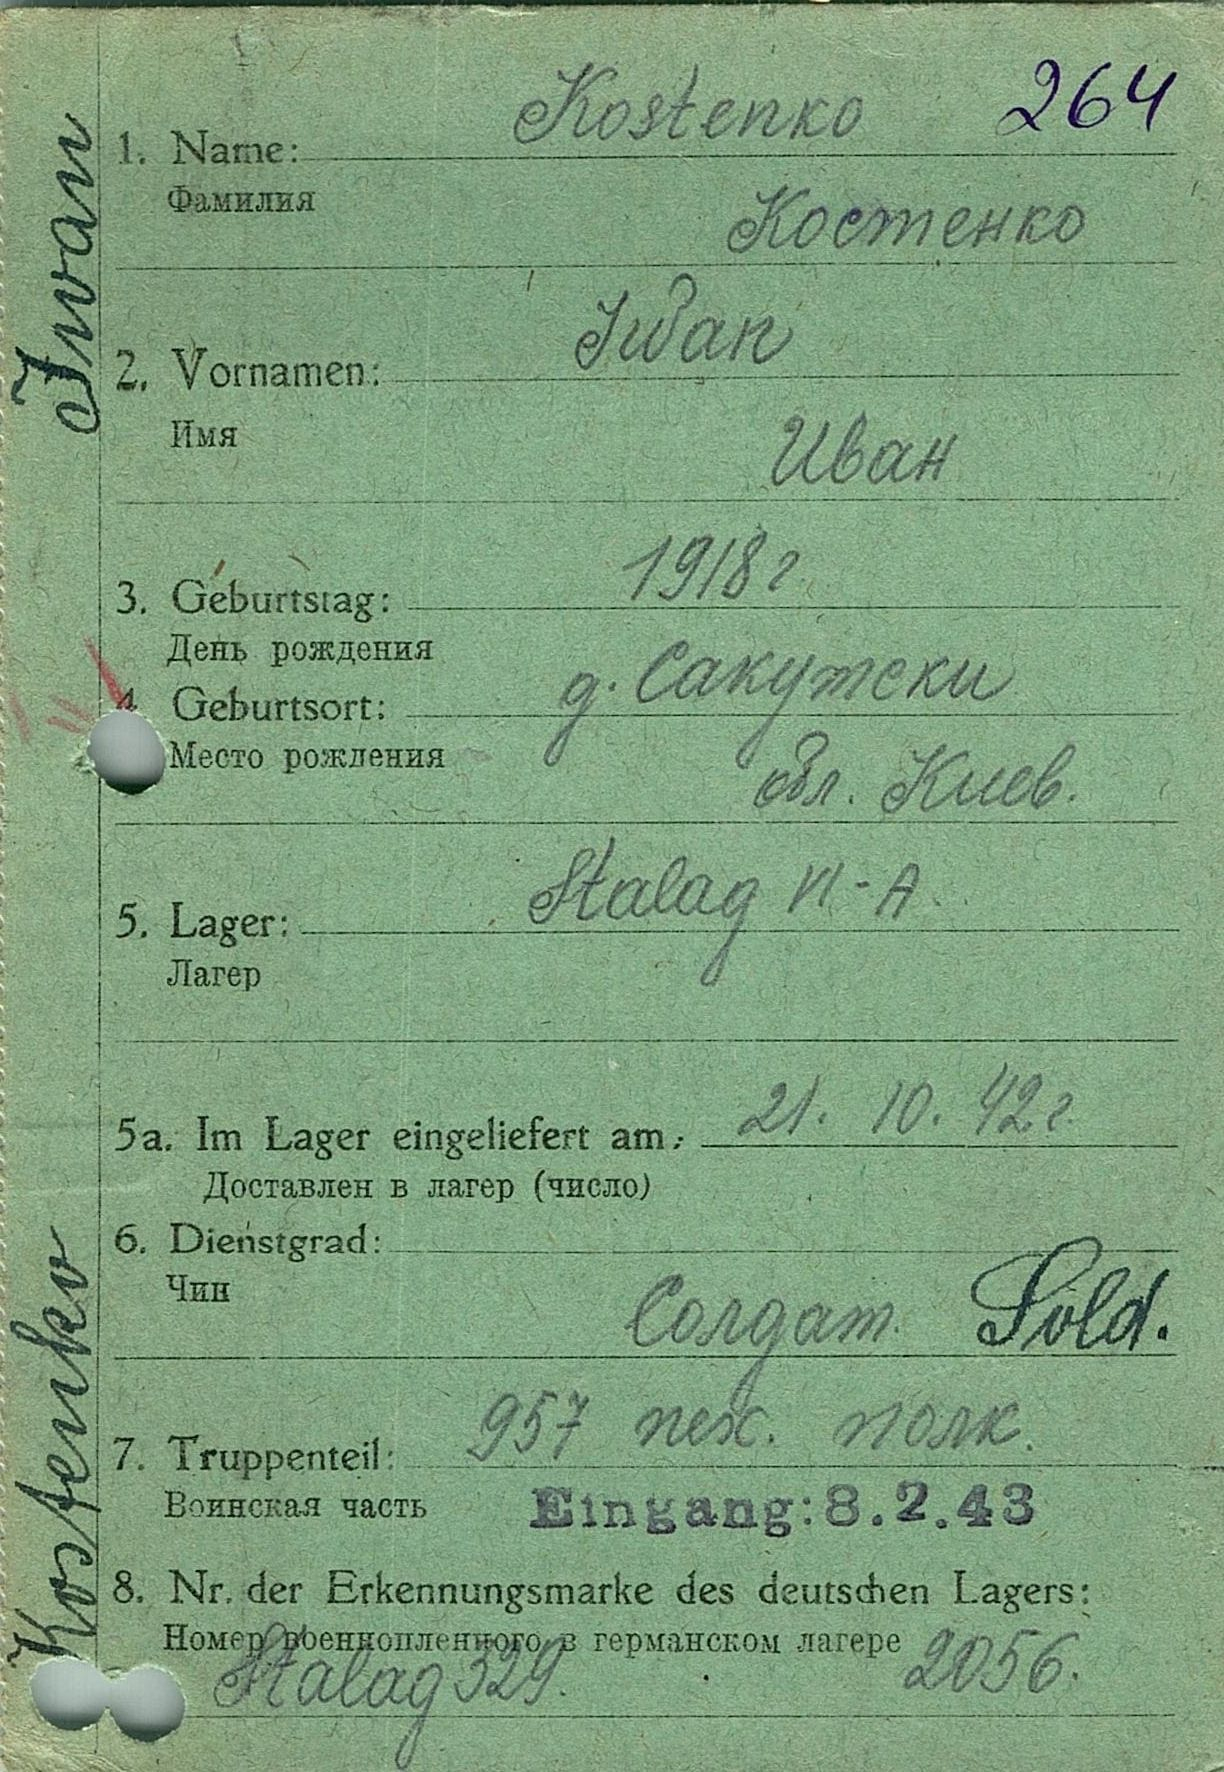 Kostenko 264
1. Name:
Фамилия
Костенко
Iwan
2. Vornamen:
Имя
Иван
3. Geburtstag: 1918 г
День рождения
4. Geburtsort: д. Сакутски
Место рождения
обл. Киев.
5. Lager: Stalag VI-A
Лагер
5a. Im Lager eingeliefert am: 21. 10. 42 г.
Доставлен в лагер (число)
6. Dienstgrad:
Чин
Солдат. Sold.
7. Truppenteil: 957 пех. полк.
Воинская часть
Eingang: 8.2.43
8. Nr. der Erkennungsmarke des deutschen Lagers:
Номер военнопленного в германском лагере
Stalag 329. 2056.
Kostenko Iwan